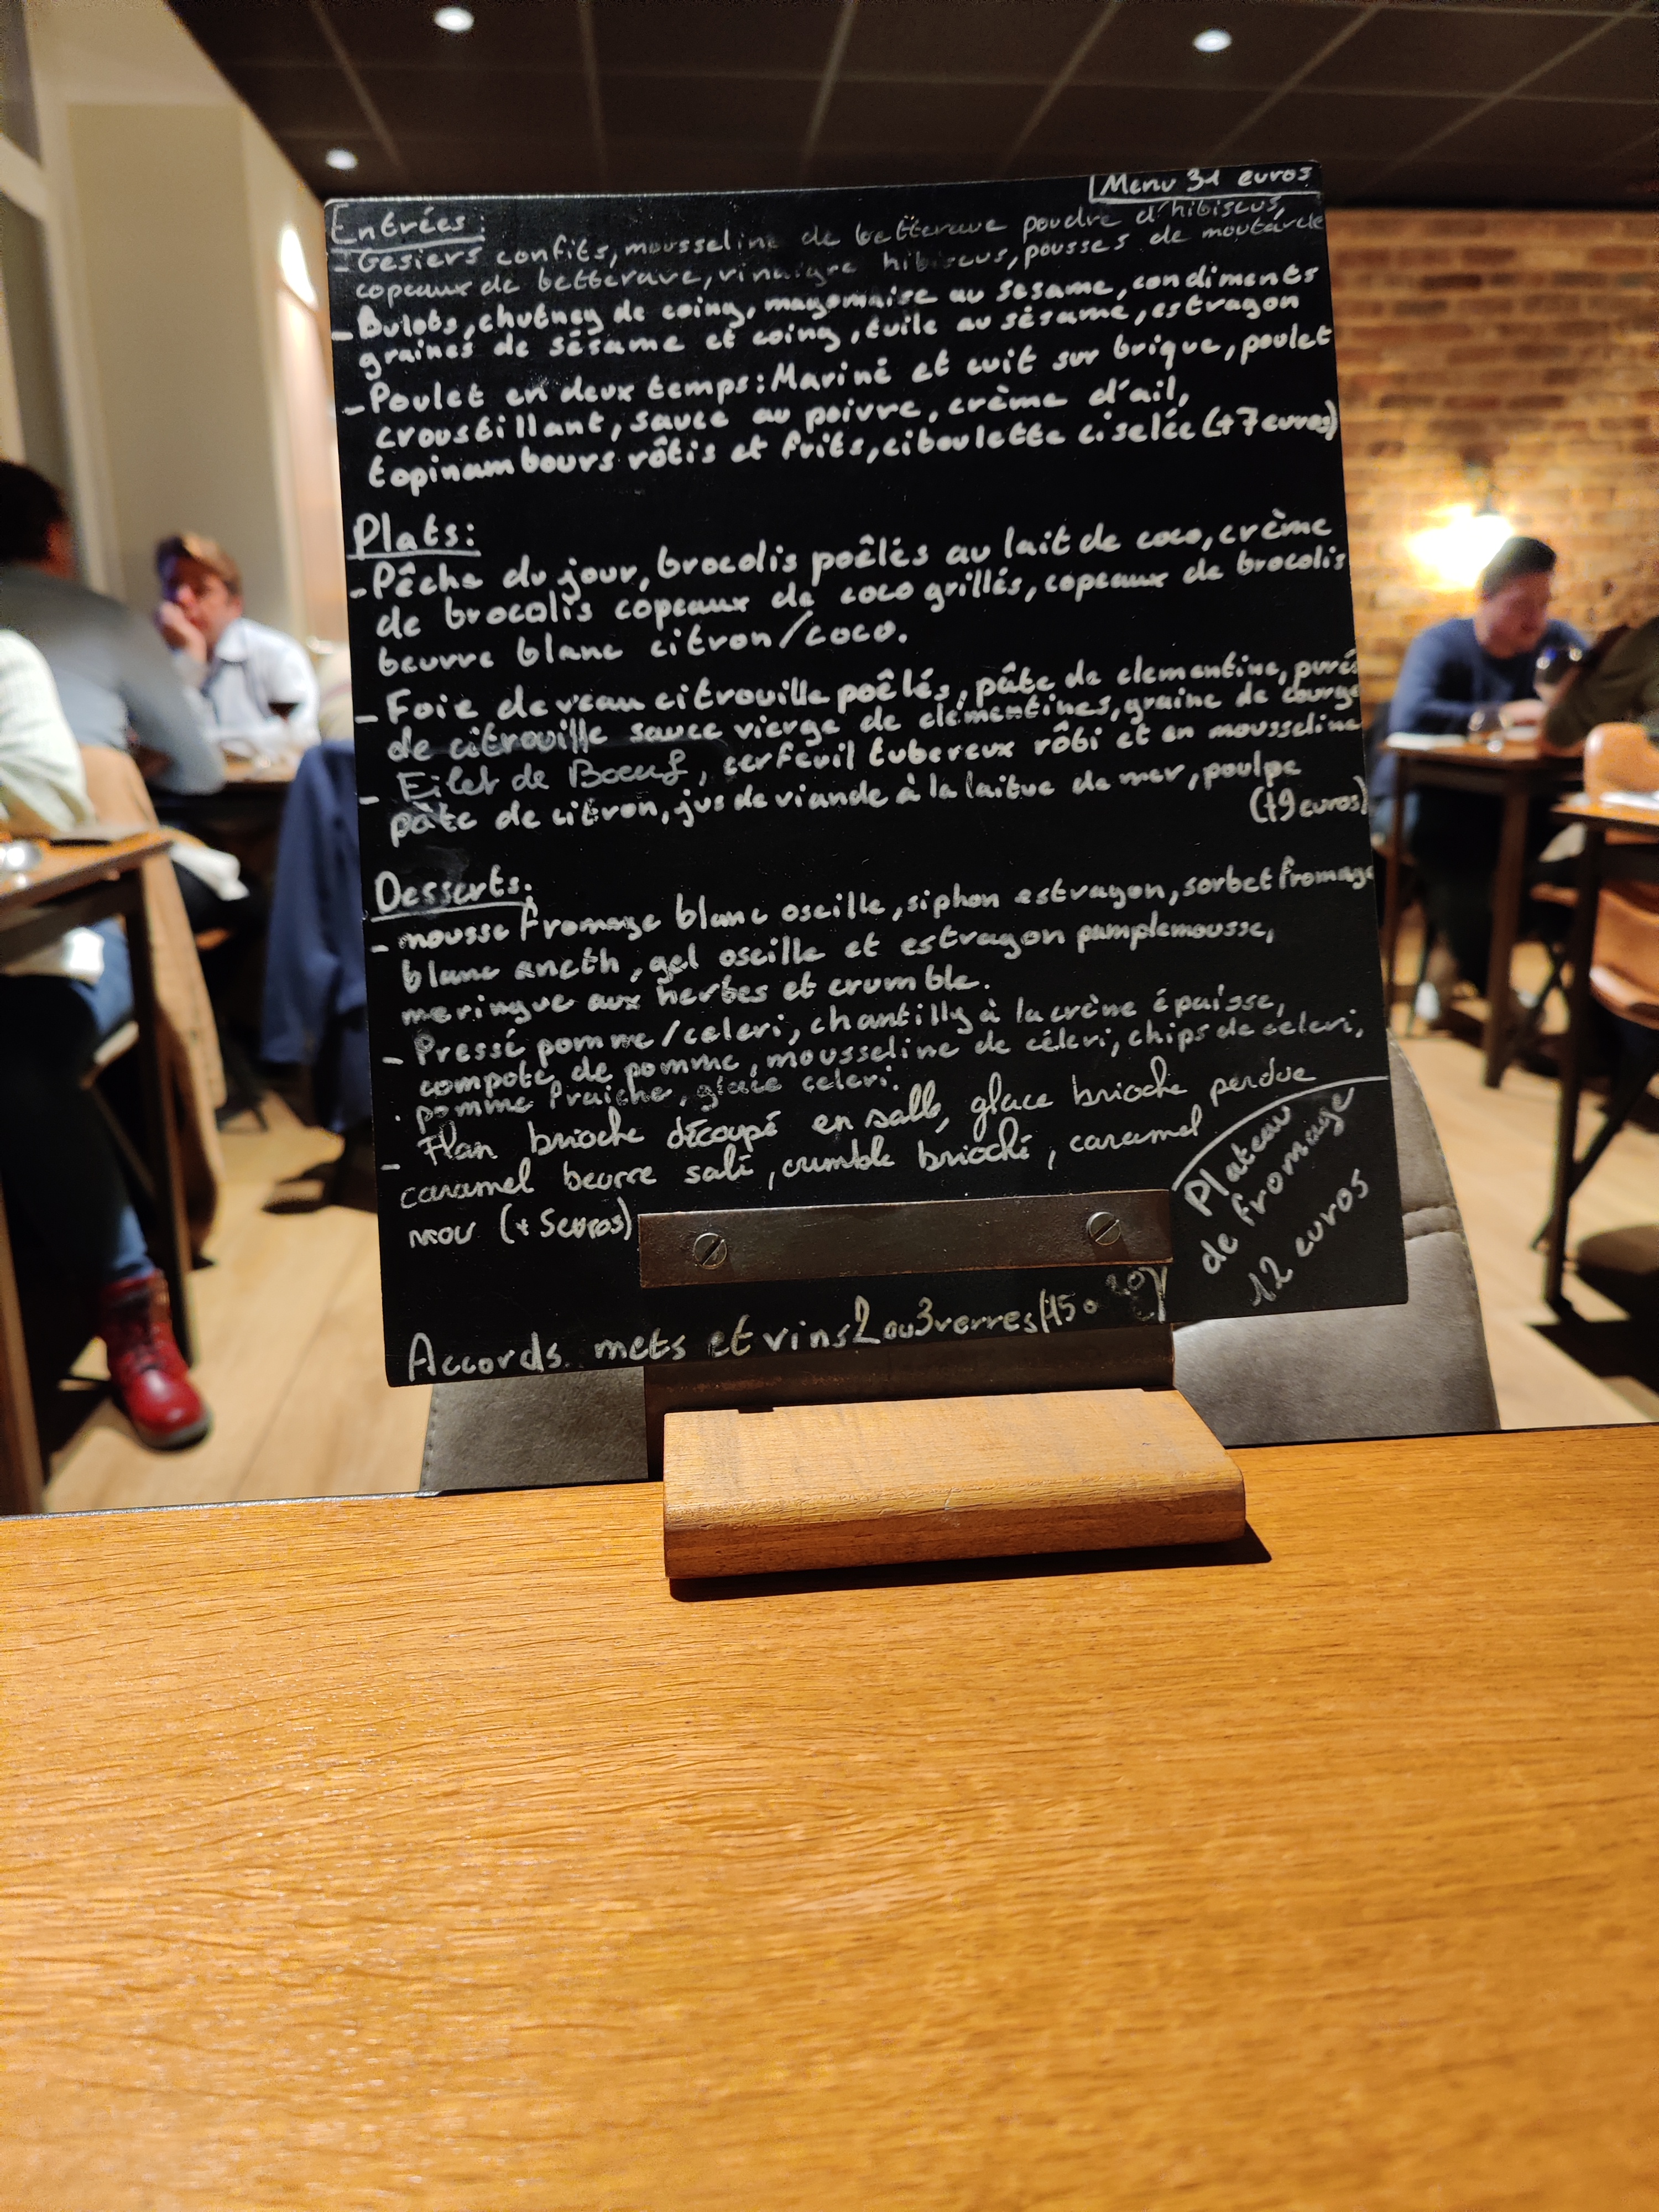 Menu 31 euros
Entrées:
- Gesiers confits, mousseline de betterave poudre d'hibiscus,
copeaux de betterave, vinaigre hibiscus, pousses de moutarde
- Bulots, chutney de coing, mayonnaise au sesame, condiments
graines de sésame et coing, tuile au sésame, estragon
- Poulet en deux temps: Mariné et cuit sur brique, poulet
croustillant, sauce au poivre, crème d'ail,
topinambours rôtis et frits, ciboulette ciselée (+7 euros)
Plats:
- Pêche du jour, brocolis poêlés au lait de coco, crème
de brocolis copeaux de coco grillés, copeaux de brocolis
beurre blanc citron/coco.
- Foie de veau citrouille poêlés, pâte de clementine, purée
de citrouille sauce vierge de clémentines, graine de courge
- Filet de Boeuf, cerfeuil tubereux rôti et en mousseline
pâte de citron, jus de viande à la laitue de mer, poulpe
(+9 euros)
Desserts:
- mousse fromage blanc oseille, siphon estragon, sorbet fromage
blanc aneth, gel oseille et estragon pamplemousse,
meringue aux herbes et crumble.
- Pressé pomme/celeri, chantilly à la crème épaisse,
compote de pomme, mousseline de céleri, chips de celeri,
pomme fraiche, glace celeri.
- Flan brioche découpé en salle, glace brioche perdue
caramel beurre salé, crumble brioché, caramel
mou (+5euros)
Plateau
de fromage
12 euros
Accords mets et vins 2 ou 3 verres (15 o